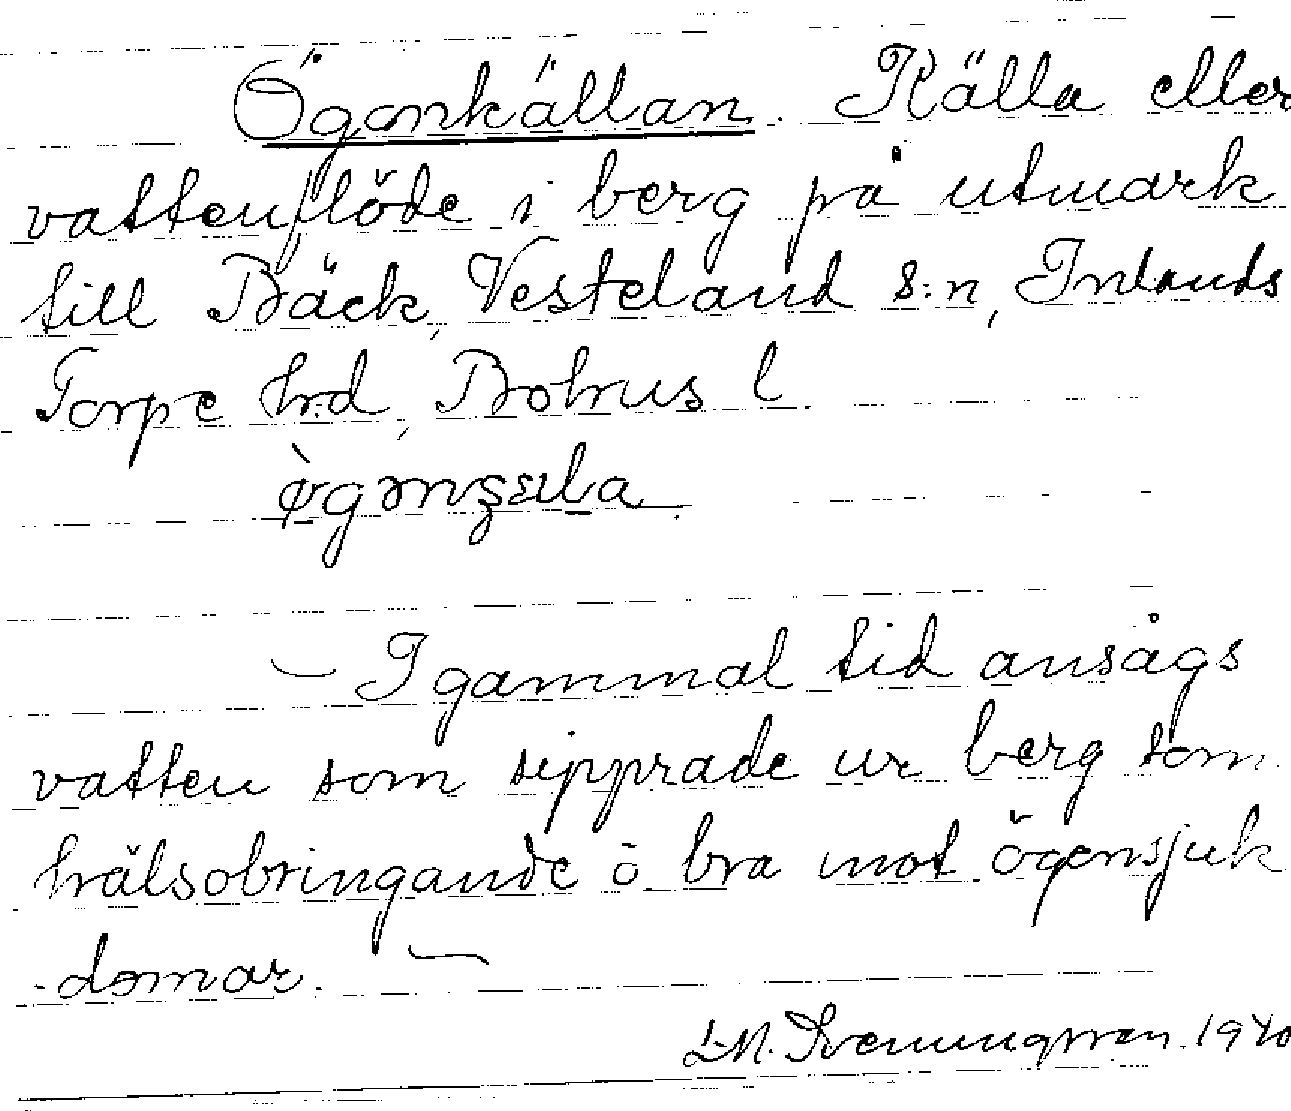 Ögonkällan. Källa eller
vattenflöde i berg på utmark
till Bäck, Vesteland s:n, Inlands
Torpe h:d, Bohus l
ø̀gənʂɛla
– I gammal tid ansågs
vatten som sipprade ur berg som
hälsobringande ö bra mot ögonsjuk
-domar. –
Sveningsson. 1940